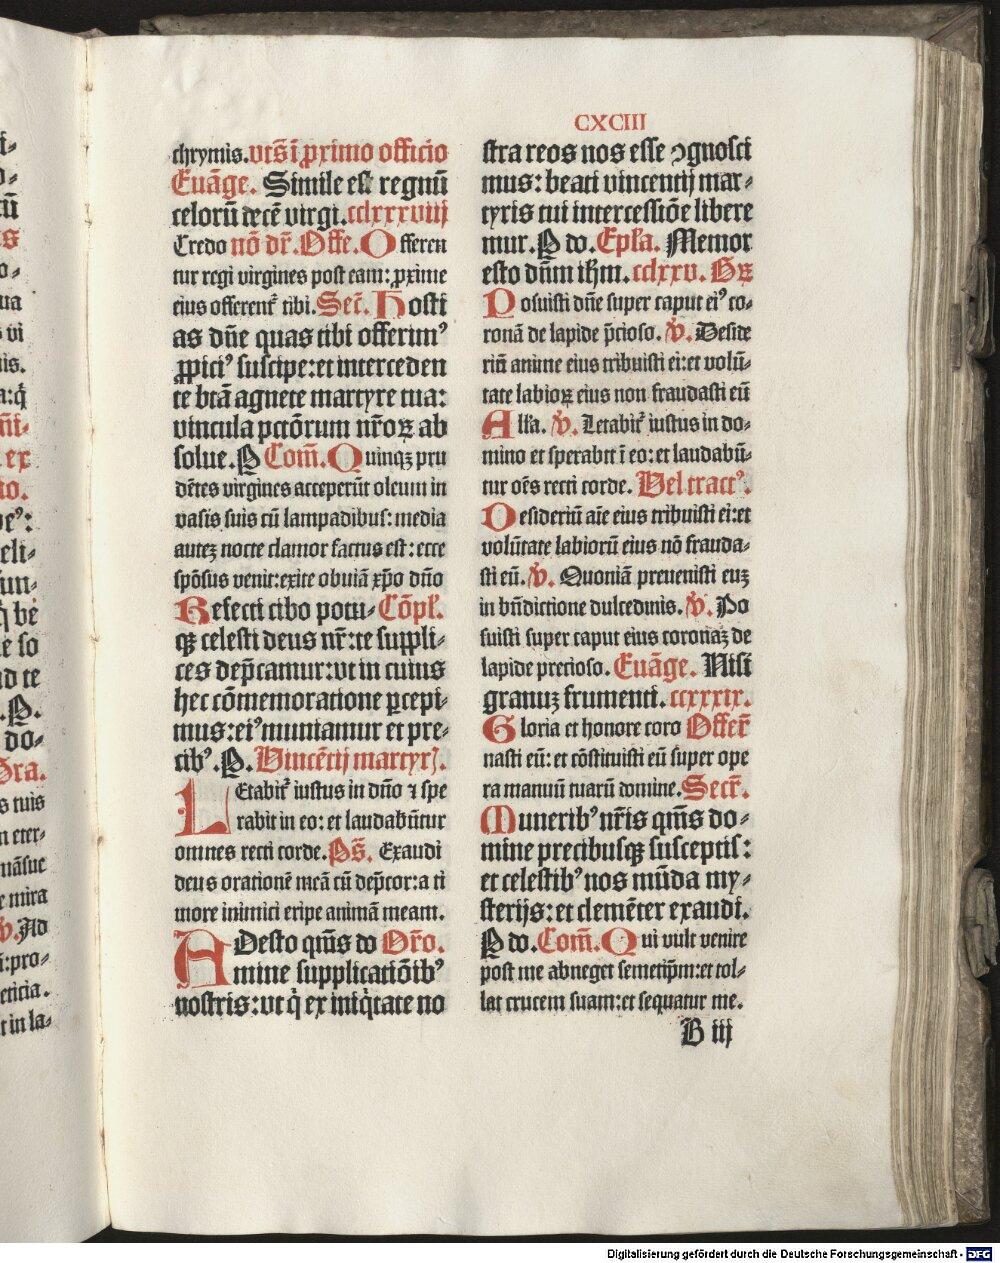 CXCIII
chrymis. vts̄ ī ꝓximo officio
Euāge. Simile est regnū
celorū decē virgi. cclxxxviij
Credo nō dr̄. Offe. Offeren
tur regi virgines post eam: ꝓxime
eius offerent᷑ tibi. Secr̄. Hosti
as dn̄e quas tibi offerimꝰ
ꝓpiciꝰ suscipe: et interceden
te btā agnete martyre tua:
vincula pctōrum nr̄oꝝ ab
solue. P Com̄. Quinqꝫ pru
dētes virgines acceperūt oleum in
vasis suis cū lampadibus: media
auteꝫ nocte clamor factus est: ecce
spōsus venit: exite obuiā xp̄o dn̄o
Refecti cibo potu⸗ Cōpl̄.
qꝫ celesti deus nr̄: te suppli⸗
ces dep̄camur: vt in cuius
hec cōmemoratione ꝑcepi⸗
mus: eiꝰ muniamur et pre⸗
cibꝰ. P. Vincētij martyrꝭ.
LEtabit᷑ iustus in dn̄o ⁊ spe
rabit in eo: et laudabūtur
omnes recti corde. Ps̄. Exaudi
deus orationē meā cū dep̄cor: a ti
more inimici eripe animā meam.
ADesto qm̄s do Or̄o.
mine supplicatiōibꝰ
nostris: vt q̄ ex iniq̇tate no
stra reos nos esse ꝯgnosci
mus: beati vincentij mar⸗
tyris tui intercessiōe libere
mur. P do. Epl̄a. Memor
esto dn̄m ih̄m. cclxxv. Gꝝ
Posuisti dn̄e super caput eiꝰ co⸗
ronā de lapide p̄cioso. v̄. Deside
riū anime eius tribuisti ei: et volū⸗
tate labioꝝ eius non fraudasti eū
All̄a. v̄. Letabit᷑ iustus in do⸗
mino et sperabit ī eo: et laudabū⸗
tur oēs recti corde. Vel tractꝰ.
Desideriū aīe eius tribuisti ei: et
volūtate labiorū eius nō frauda⸗
sti eū. v̄. Quoniā preuenisti euꝫ
in bn̄dictione dulcedinis. v̄. Po
suisti super caput eius coronaꝫ de
lapide precioso. Euāge. Nisi
granuꝫ frumenti. ccxxxix.
Gloria et honore coro Offer̄
nasti eū: et cōstituisti eū super ope
ra manuū tuarū domine. Secr̄.
Muneribꝰ nr̄is qm̄s do⸗
mine precibusqꝫ susceptis:
et celestibꝰ nos mūda my⸗
sterijs: et clemēter exaudi.
P do. Com̄. Qui vult venire
post me abneget semetip̄m: et tol⸗
lat crucem suam: et sequatur me.
B iij
Digitalisierung gefördert durch die Deutsche Forschungsgemeinschaft - DFG